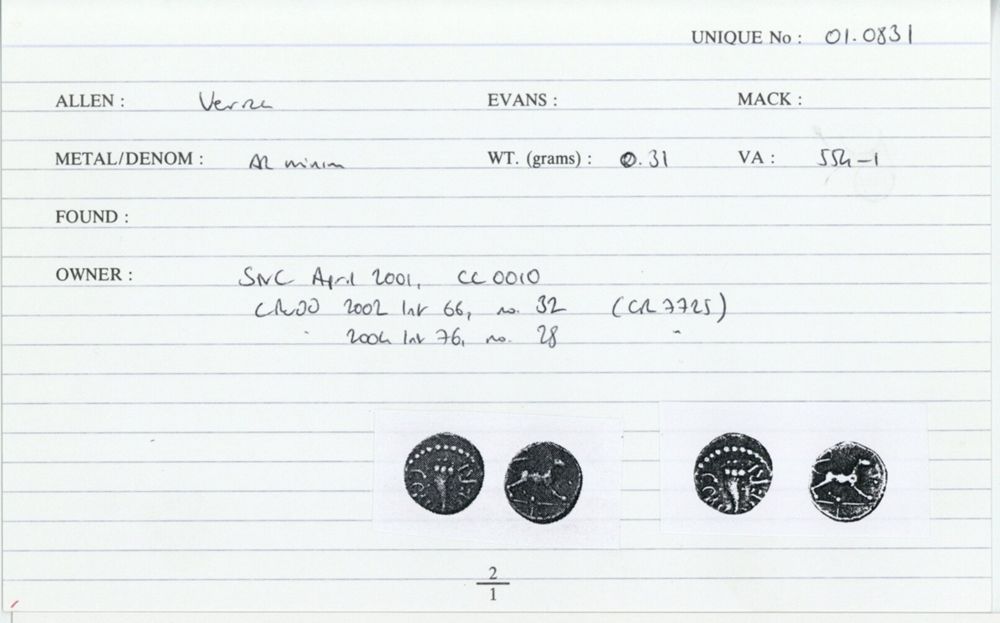 UNIQUE No : 01.0831
ALLEN : Verica EVANS : MACK :
METAL/DENOM : AR minim WT. (grams) : 0.31 VA : 554-1
FOUND :
OWNER : SNC April 2001, CC0010
2002 list 66, no. 32 (CR 7725)
" 2004 list 76, no. 28 "
2
1